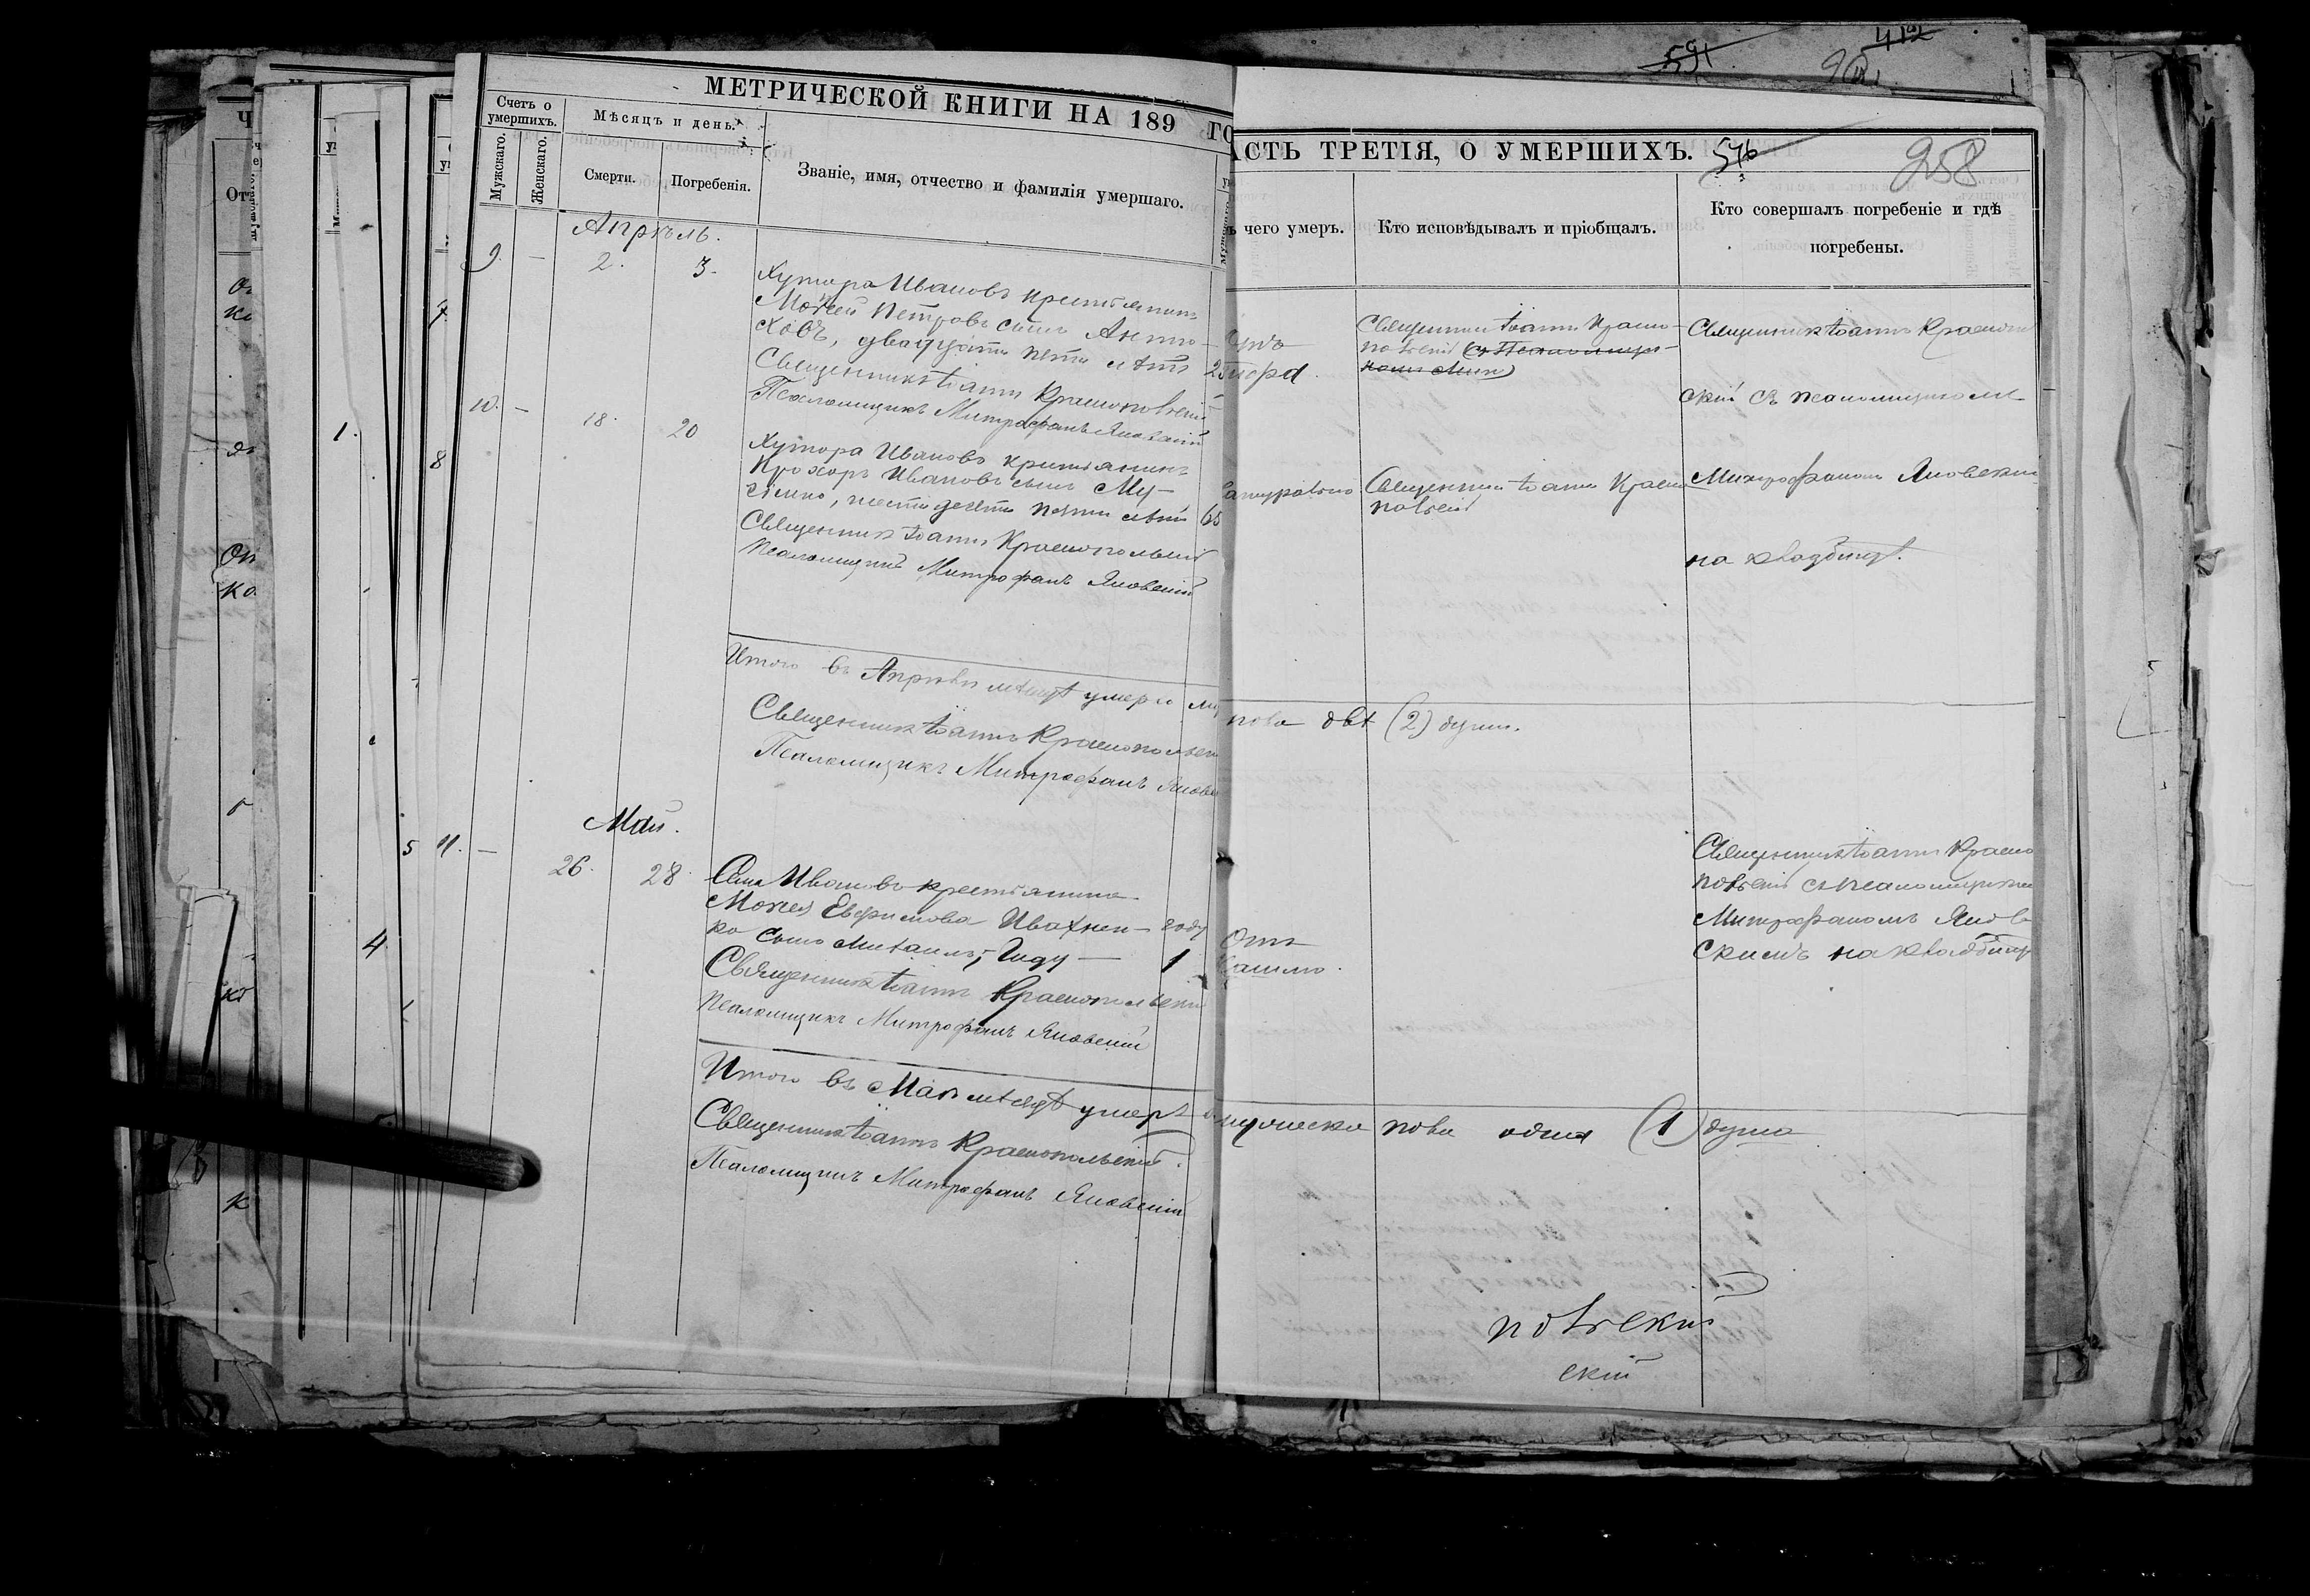 412
591
МЕТРИЧЕСКОЙ КНИГИ НА 189 ГО
АСТЬ ТРЕТІЯ, О УМЕРШИХЪ.
576
258
Счетъ о умершихъ.
Мужскаго.
Женскаго.
Мѣсяцъ и день.
Смерти.
Погребенія.
Званіе, имя, отчество и фамилія умершаго.
чего умеръ.
Кто исповѣдывалъ и пріобщалъ.
Кто совершалъ погребеніе и гдѣ
погребены.
Апрѣль.
9. — 2. 3.
Хутора Ивановъ крестьянинъ
Моѵсей Петровъ сынъ Анто-
ховъ, двадцати пяти лѣтъ 25
Священникъ Іоаннъ Краснопольскій
Псаломщикъ Митрофанъ Яновскій
Священникъ Іоаннъ Красно-
польскій
Священникъ Іоаннъ Краснополь
скій съ псаломщикомъ
Митрофаномъ Яновскимъ
на кладбищѣ.
10. — 18. 20
Хутора Ивановъ крестьянинъ
Прохоръ Ивановъ сынъ Му-
шестидесяти пяти лѣтъ 65
Священникъ Іоаннъ Краснопольскій
Псаломщикъ Митрофанъ Яновскій
натурально
Священникъ Іоаннъ Красно
польскій
Итого въ Апрѣлѣ мѣсяцѣ умерло му
пола двѣ (2) души.
Священникъ Іоаннъ Краснопольскій
Псаломщикъ Митрофанъ Яновскій
Май.
11. — 26. 28.
Села Ивановъ крестьянина
Моѵсея Евфимова Ивахнен-
ко сынъ Михаилъ, Году — 1
году
Отъ
кашлю.
Священникъ Іоаннъ Краснопольскій
Псаломщикъ Митрофанъ Яновскій
Священникъ Іоаннъ Красно
польскій съ псаломщикомъ
Митрофаномъ Янов
скимъ на кладбищѣ
Итого въ Маѣ мѣсяцѣ умерла
мужеска пола одна (1) душа
Священникъ Іоаннъ Краснопольскій.
Псаломщикъ Митрофанъ Яновскій
польскій
скій